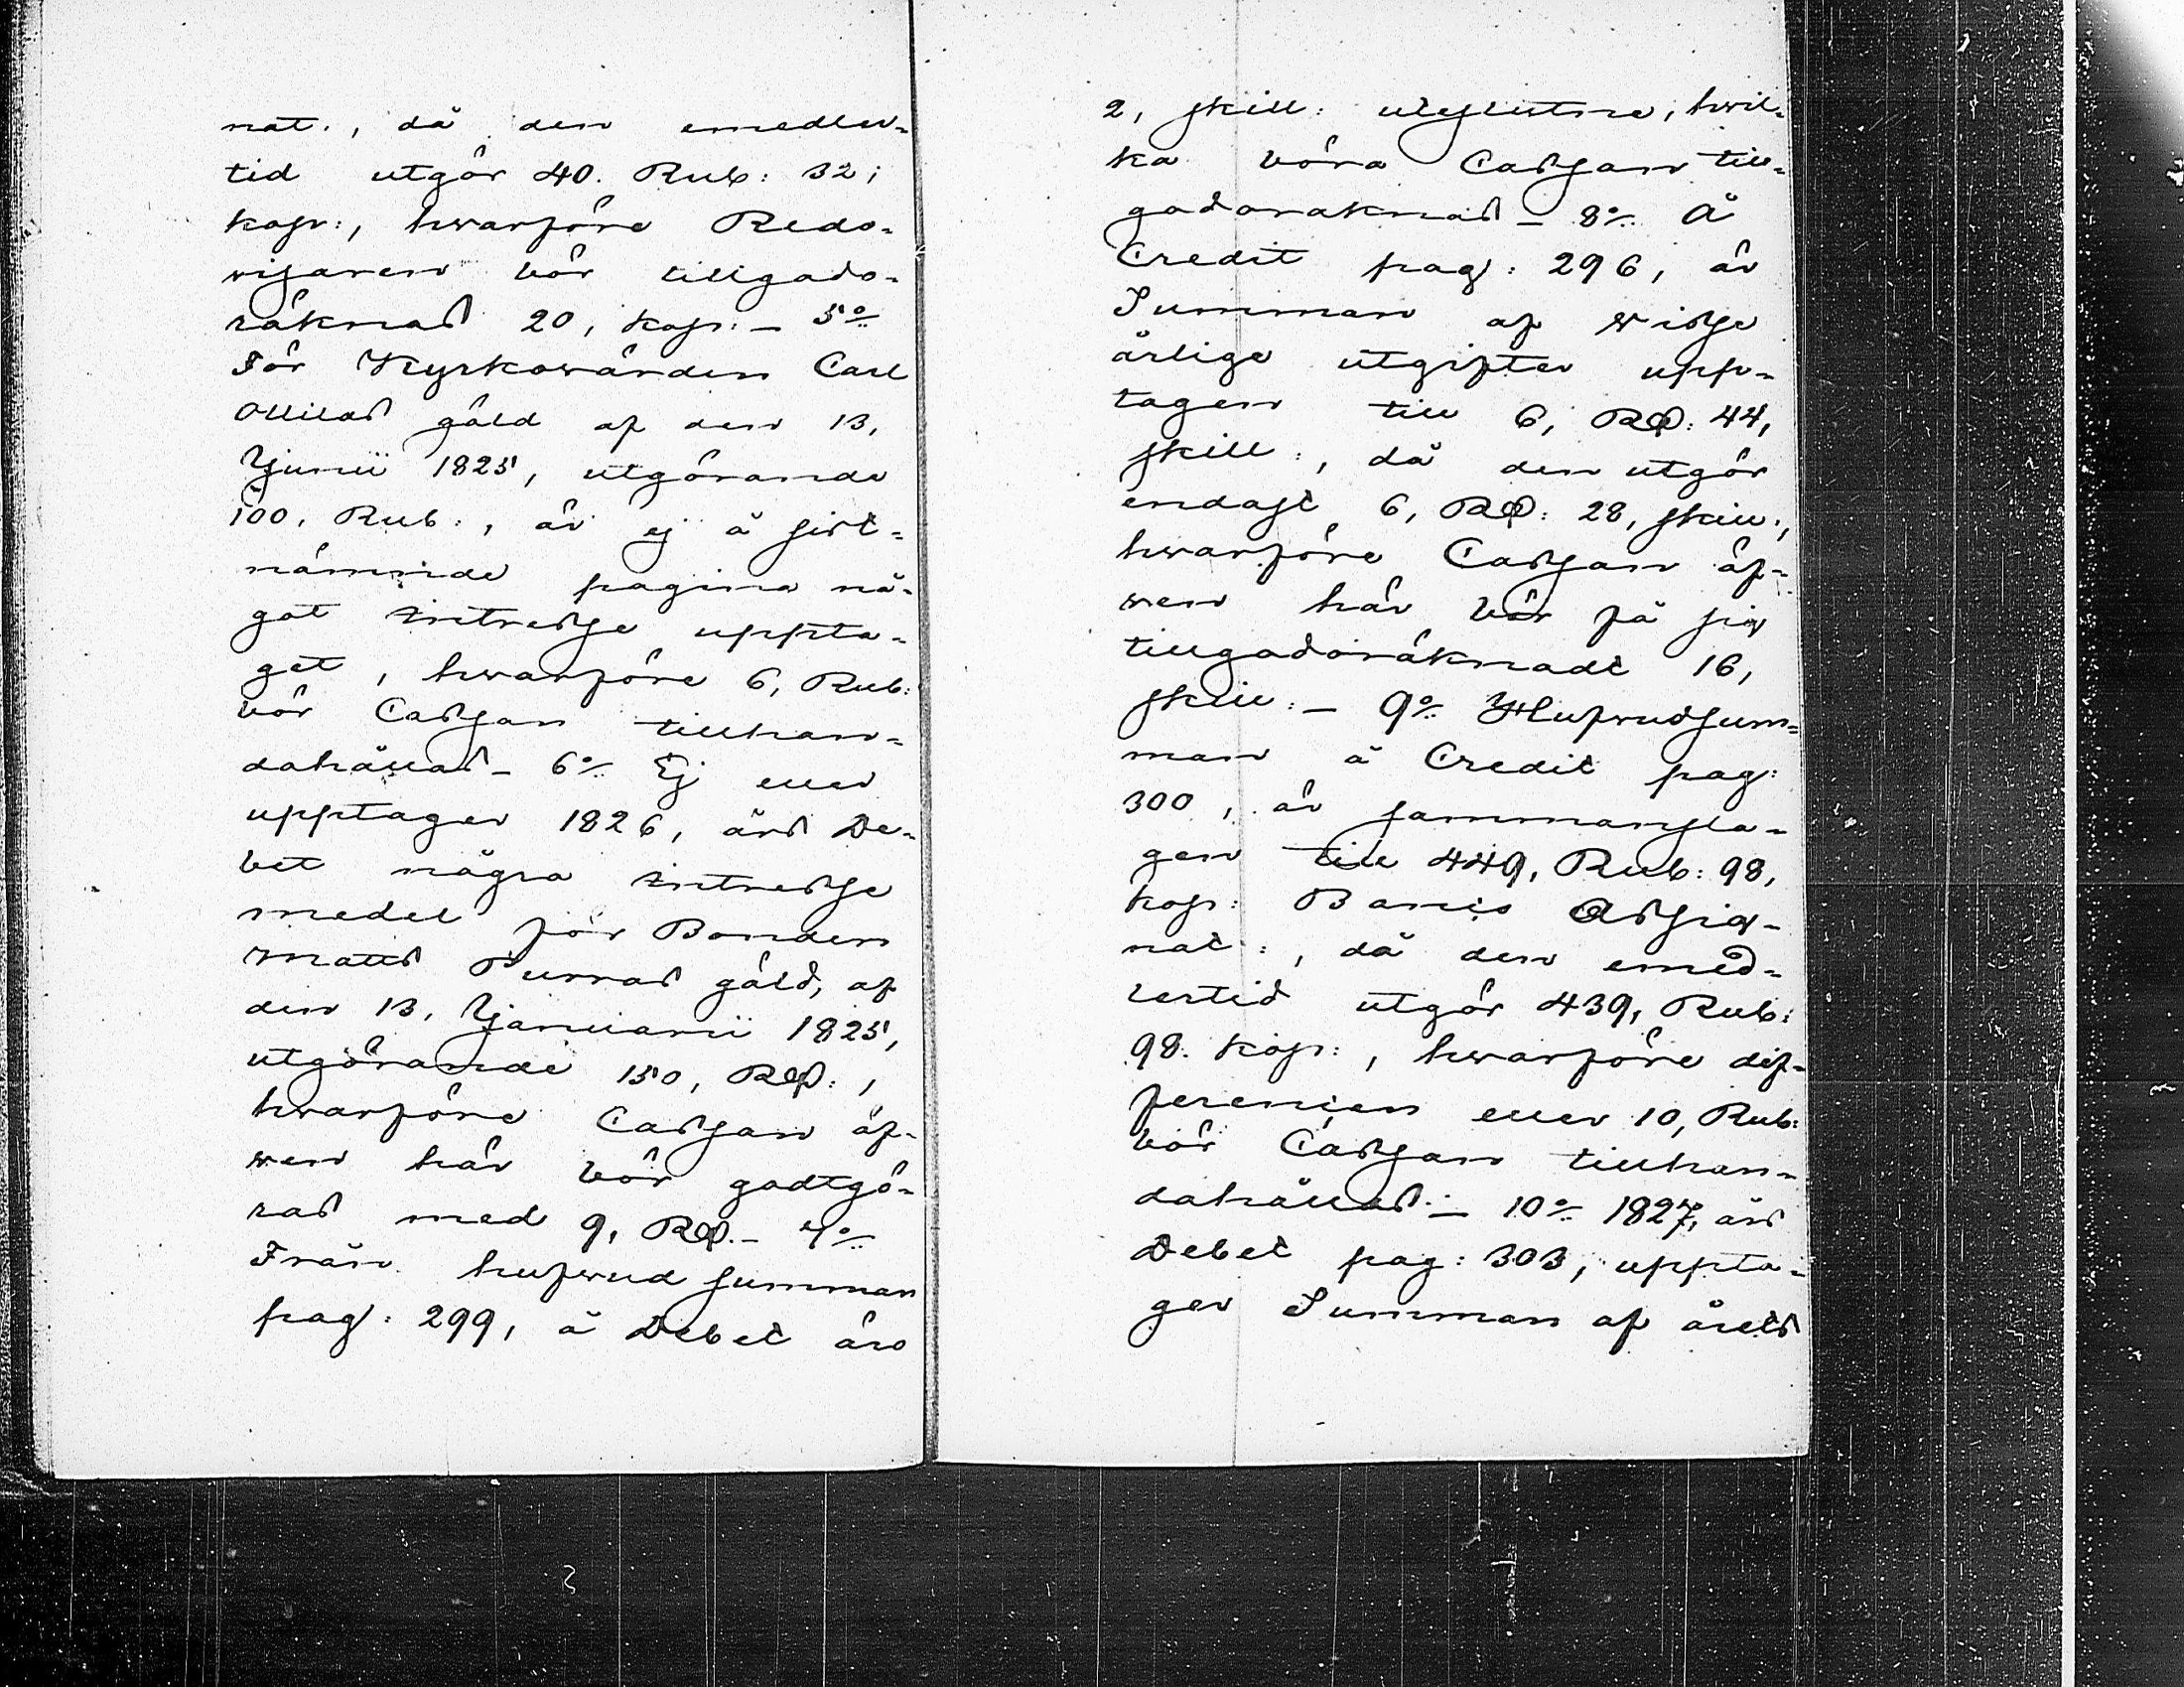 nat., då den emedler-
tid utgör 40. Rub: 32;
kop:, hwarföre Redo-
wisaren bör tillgodo-
räknas 20, kop:- 5o
För Kyrkowärden Carl
Ollilas gäld af den 13,
Junii 1825, utgörande
100, Rub:, är ej å sist-
nämnde pagina nå-
got Intresse uppta-
get, hwarföre 6, Rub:
bör Cassan tillhan-
dahållas- 6o Ej eller
upptager 1826, års De-
bet några Intresse
medel för Bonden
Matts Purras gäld, af
den 13, Januarii 1825,
utgörande 150, Rd:,
hwarföre Cassan äf-
wen här bör godtgö-
ras med 9, Rd.- 7o
Från hufwud summan
pag: 299, å Debet äro
2, skill: uteslutne, hwil-
ka böra Cassan till-
godoräknas - 8o Å
Credit pag: 296, är
Summan af Wisse
årlige utgifter upp-
tagen till 6, Rd: 44,
skill:, då den utgör
endast 6, Rd: 28, skill.,
hwarföre Cassan äf-
wen här bör få sig
tillgodoräknadt 16,
skill:- 9o Hufwudsum-
man å Credit pag:
300, är sammansla-
gen till 449, Rub: 98,
kop: Banco Assig-
nat:, då den emed-
lertid utgör 439, Rub:
98. kop:, hwarföre dif-
ferencen eller 10, Rub:
bör Cassan tillhan-
dahållas:- 10o 1827, års
Debet pag: 303, uppta-
ger Summan af årets